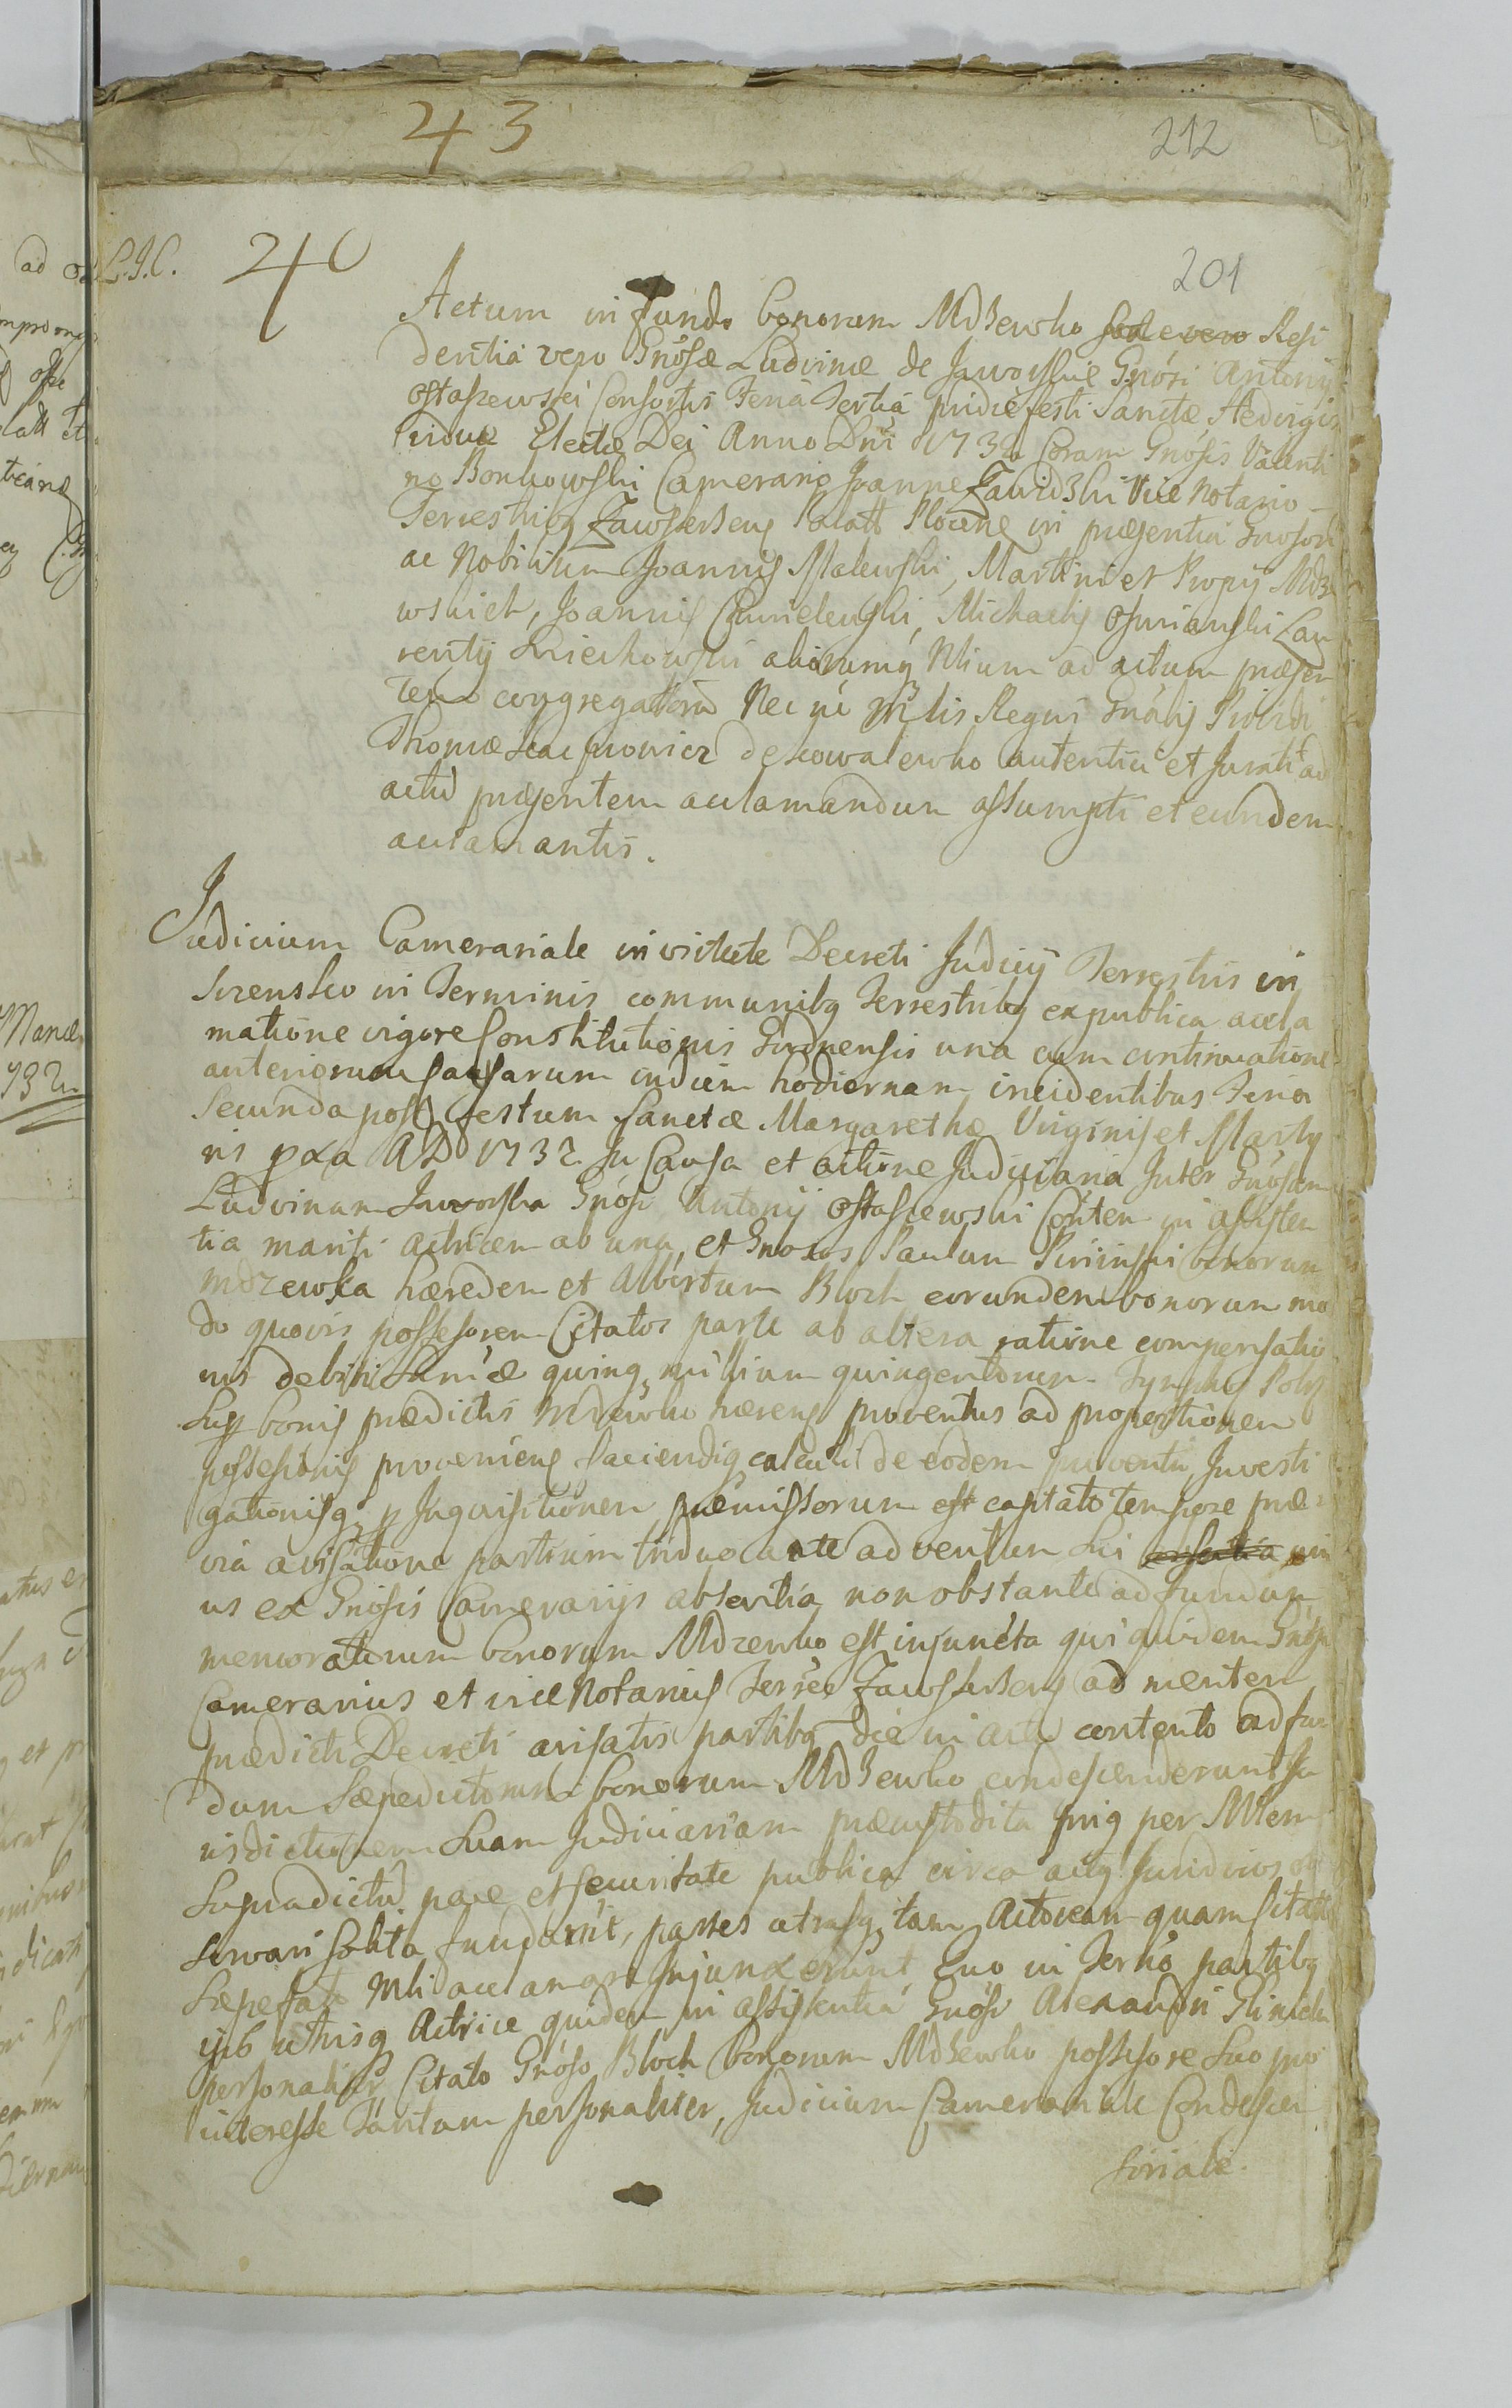 43
212
L.J.C.
40
201
Actum in fundo bonorum Mdzewko Resi
dentia vero Gnosæ Ludvinæ de Jaworskie Gnosi Antonij
Ostaszewski Consortis Feria Tertia pridie festi Sanctæ Hedvigis
viduæ Electæ Dei Anno Dni 1732 Coram Gnosis Valenti
no Bonkowski Camerario Joanne Zawidzki Vice Notario
Terrestribq Zawskrsens Palatt Plocens in præsentia Gnosor
ac Nobilium Joannis Malewski, Martini et Mdze
wskich, Joannis Chmielewski, Michaelis Osmianski Lau
rentij aliorumq Nlium ad actum præsen
tem congregator Nec n Mnlis Regni Gnalis Providi
Thomæ de Kowalewko autentici et Jurati ad
actu præsentem acclamandum assumpti et eundem
acclamantis.
Judicium Camerariale in virtute Decreti Judicij Terrestris in
Srensko in Terminis communibq Terrestribq ex publica accla
matione vigore Constitutionis Grodnensis una cum continuatione
anteriorum Causarum in diem hodiernam incidentibus Feria
Secunda post festum Sanctæ Margarethæ Virginis et Marty
ris pxa AD 1732 In Causa et actione Judiciaria Inter Gnosam
Ludvinam Jaworska Gnosi Antonij Ostaszewski Conten in assisten
tia mariti actricem ab una, et Gnosos Paulum bonorum
Mdzewka hæredem et Albertum Bloch eorundem bonorum mo
do quovis possesorem Citatos parte ab altera ratione compensatio
nis debiti Sumæ quinq millium quingentorum Tynph Polz
Sup bonis prædictis Mdzewko hærens proventus ad proportionem
possesionis proveniens faciendiq calculi de eodem proventu Investi
gationisq p Inquisitionem præmissorum est captato tempore præ
via avisatione partium triduo ante adventum Sui uni
us ex Gnosis Camerarijs absentia non obstante ad fundum
memoratorum bonorum Mdzewko est injuncta qui quidem Gnosus
Camerarius et vice Notarius Terres Zawskrsens ad mentem
prædicti Decreti avisatis partibq die in actu contento ad fun
dum Sæpedictorum bonorum Mdzewko condescenderunt Ju
risdictionem Suam Judiciariam præcustodita priq per Mlem
Supradictu pace et securitate publica circa actq Juridicos ob
servari solita fundarut, partes utrasq tam Actoream quam Citatt
Sæpefati Mli acclamare Injunxerunt Quo in Termo partibq
ijsb utrisq Actrice quidem in assistentia Gnosi Alexandri Glinicki
personaliter Citato Gnoso Bloch bonorum Mdzewko possesore Suo pro
interesse Tantum personaliter, Judicium Camerariale Condescen
soriale.